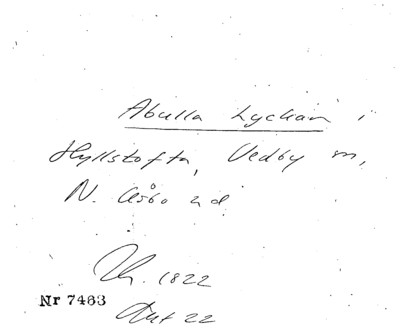 Abulla Lyckan i
Hyllstofta, Vedby m,
N. Åsbo hd
1822
Nr 7463
Akt 22